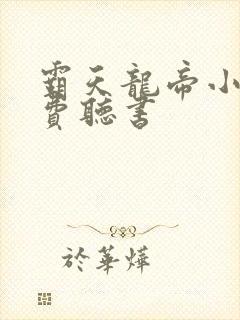 霸天龍帝小
費聽書
於華燁